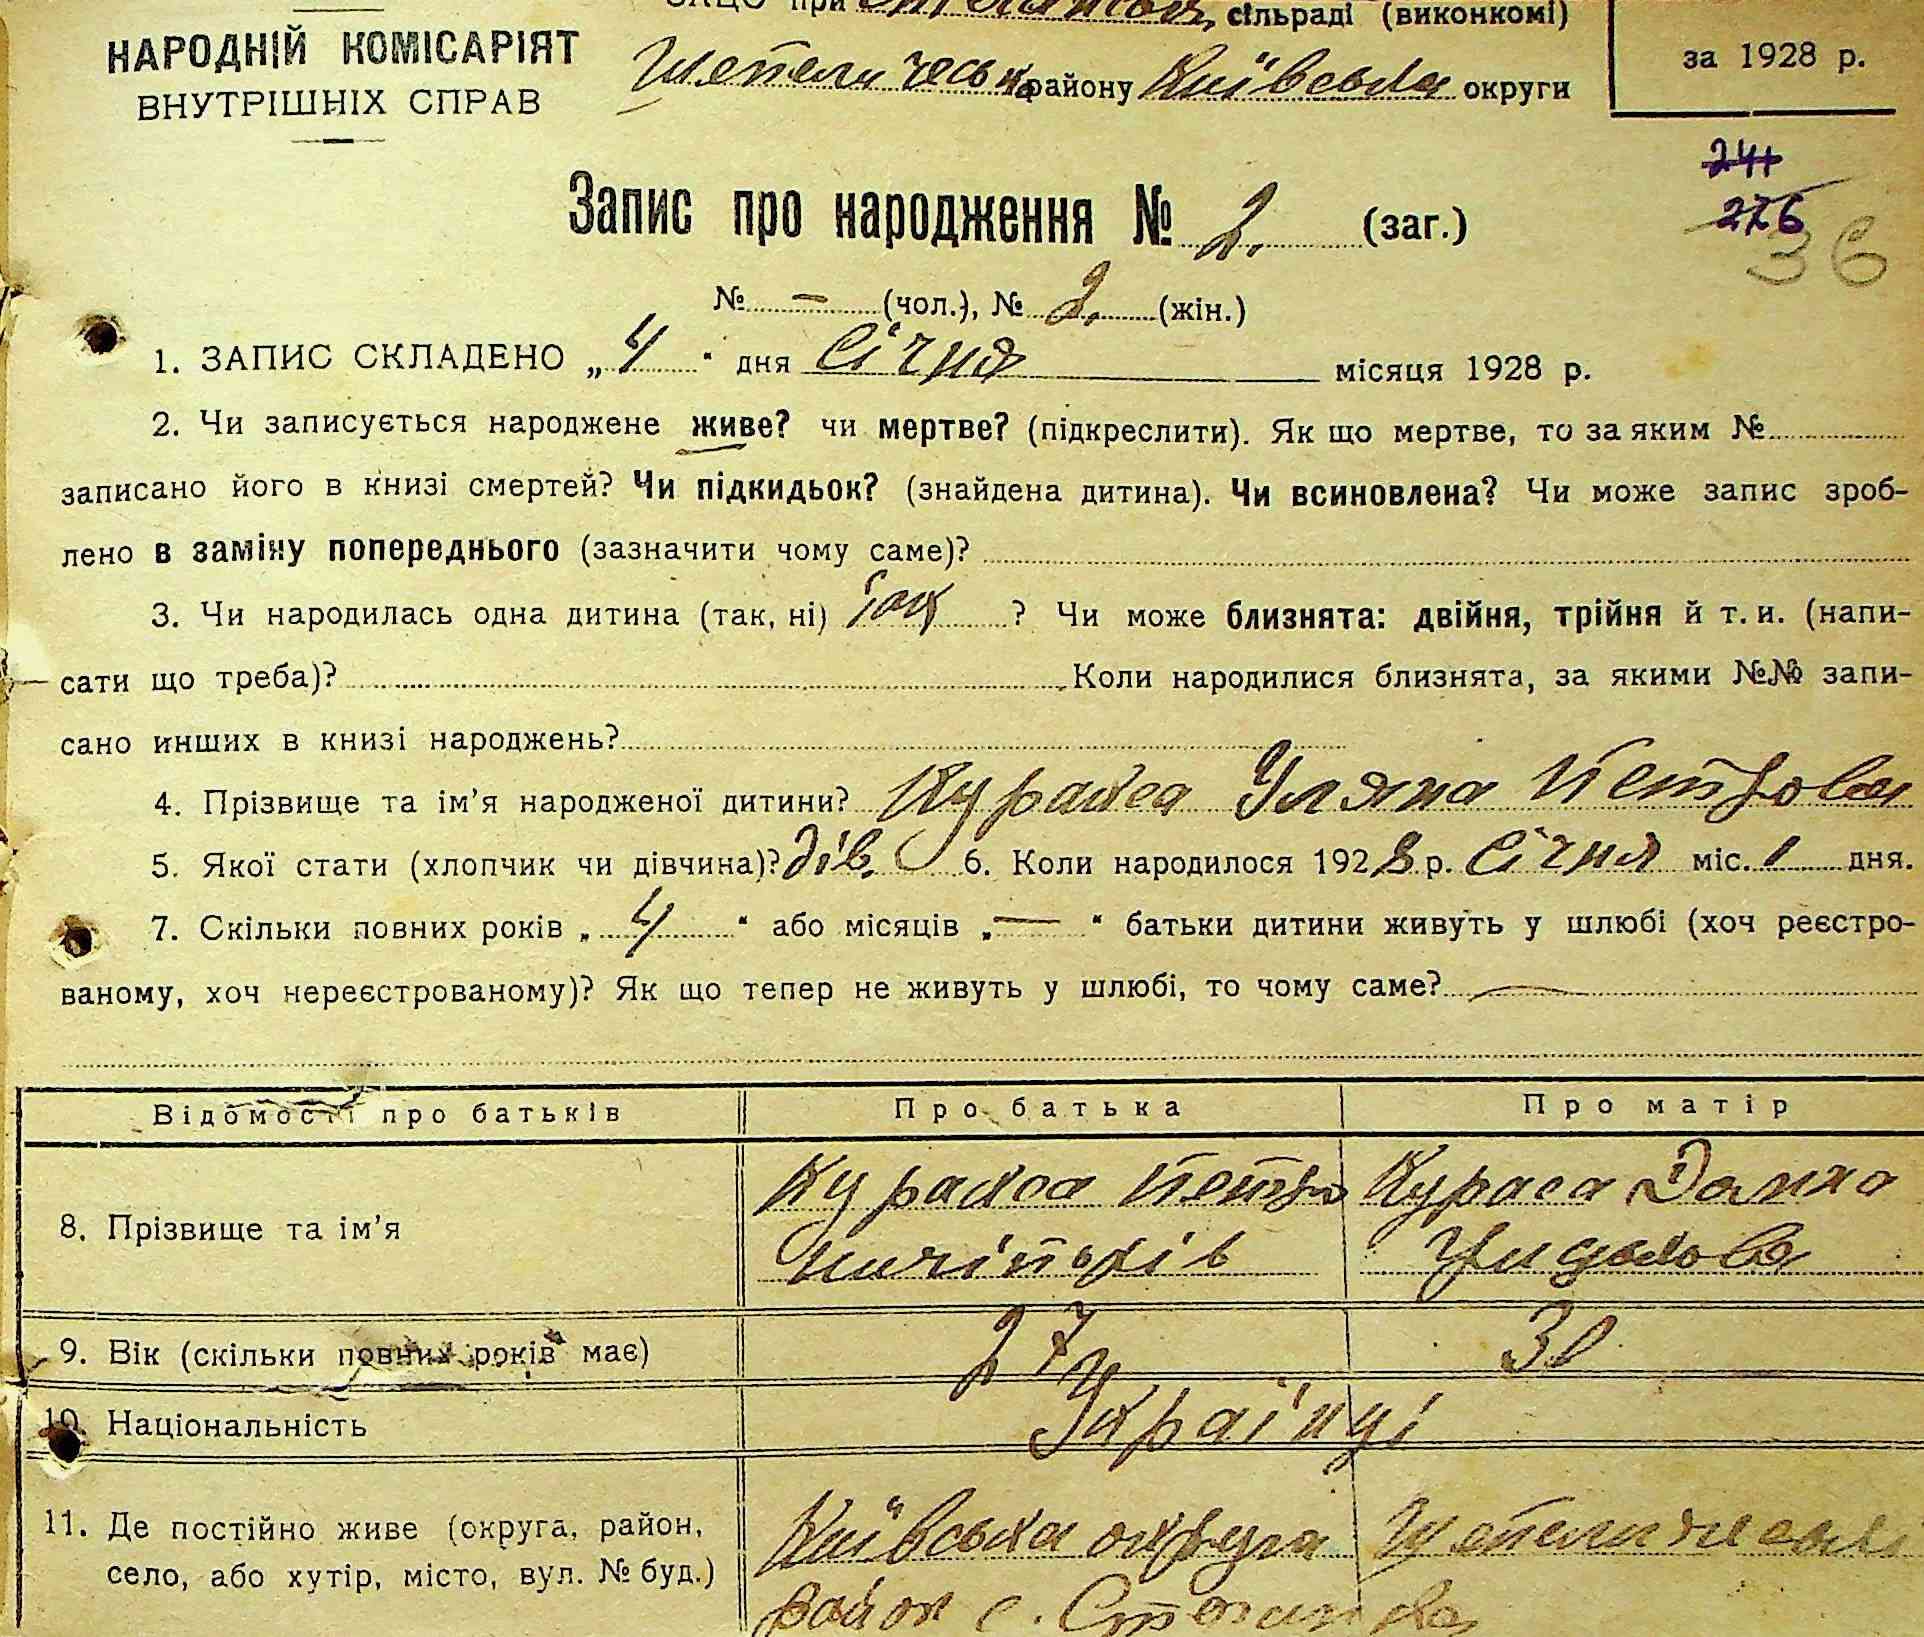 ЗАЦС при сільраді (виконкомі)
НАРОДНІЙ КОМІСАРІЯТ
ВНУТРІШНІХ СПРАВ
району Київська округи
за 1928 р.
241
276
36
Запис про народження № 2. (заг.)
№ — (чол.), № 2. (жін.)
1. ЗАПИС СКЛАДЕНО „4" дня Січня місяця 1928 р.
2. Чи записується народжене живе? чи мертве? (підкреслити). Як що мертве, то за яким №
записано його в книзі смертей? Чи підкидьок? (знайдена дитина). Чи всиновлена? Чи може запис зроб-
лено в заміну попереднього (зазначити чому саме)?
3. Чи народилась одна дитина (так, ні) так ? Чи може близнята: двійня, трійня й т. и. (напи-
сати що треба)? Коли народилися близнята, за якими №№ запи-
сано инших в книзі народжень?
4. Прізвище та ім'я народженої дитини? Кураса Уляна Петрова
5. Якої стати (хлопчик чи дівчина)? дів. 6. Коли народилося 1928 р. Січня міс. 1 дня.
7. Скільки повних років „4" або місяців „—" батьки дитини живуть у шлюбі (хоч реєстро-
ваному, хоч нереєстрованому)? Як що тепер не живуть у шлюбі, то чому саме? —
Відомості про батьків Про батька Про матір
Кураса Петро Кураса
8. Прізвище та ім'я
9. Вік (скільки повних років має) 27 30
10. Національність Українці
11. Де постійно живе (округа, район, Київська округа
село, або хутір, місто, вул. № буд.) район с.